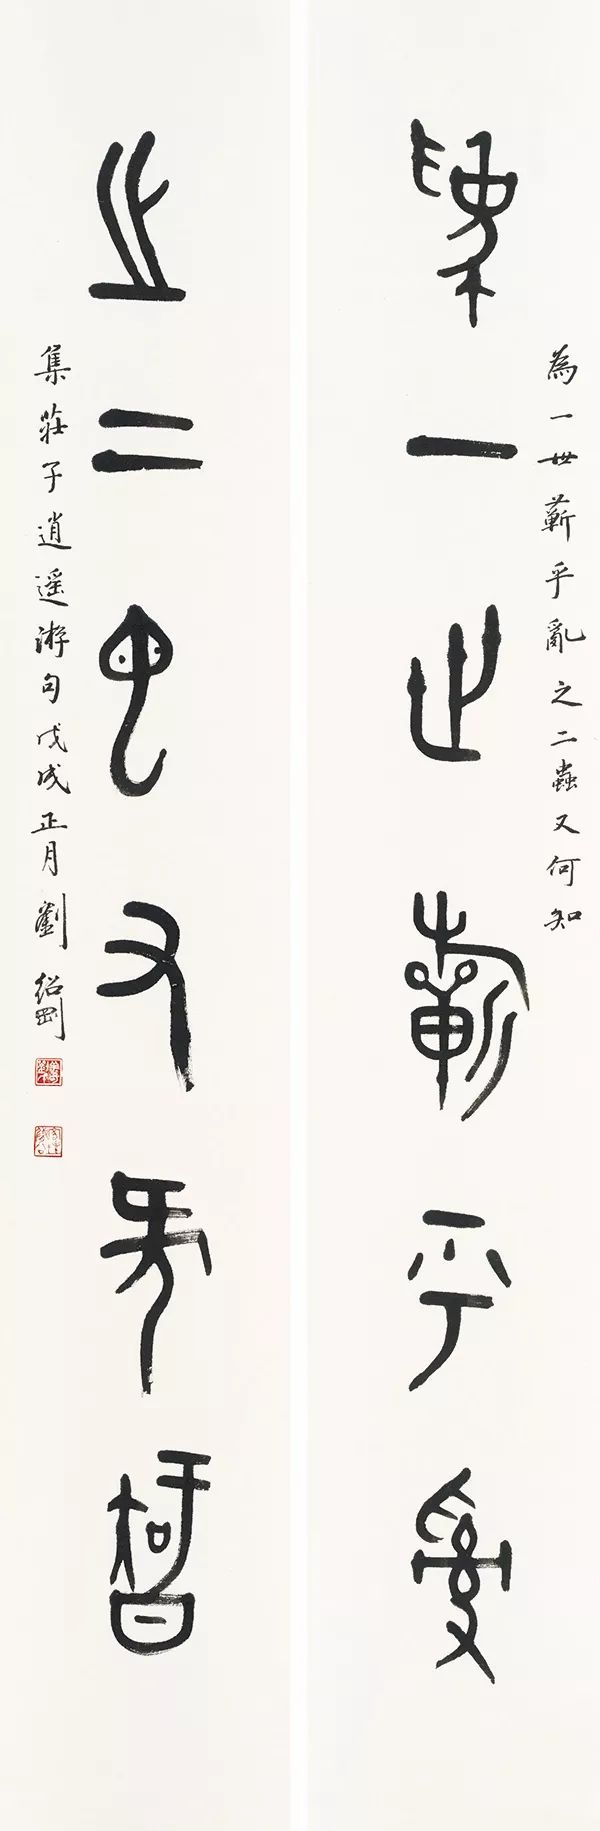 為一世蘄乎亂
之二蟲又何知
為一世蘄乎亂之二蟲又何知
集莊子逍遥游句戊戌正月劉紹剛